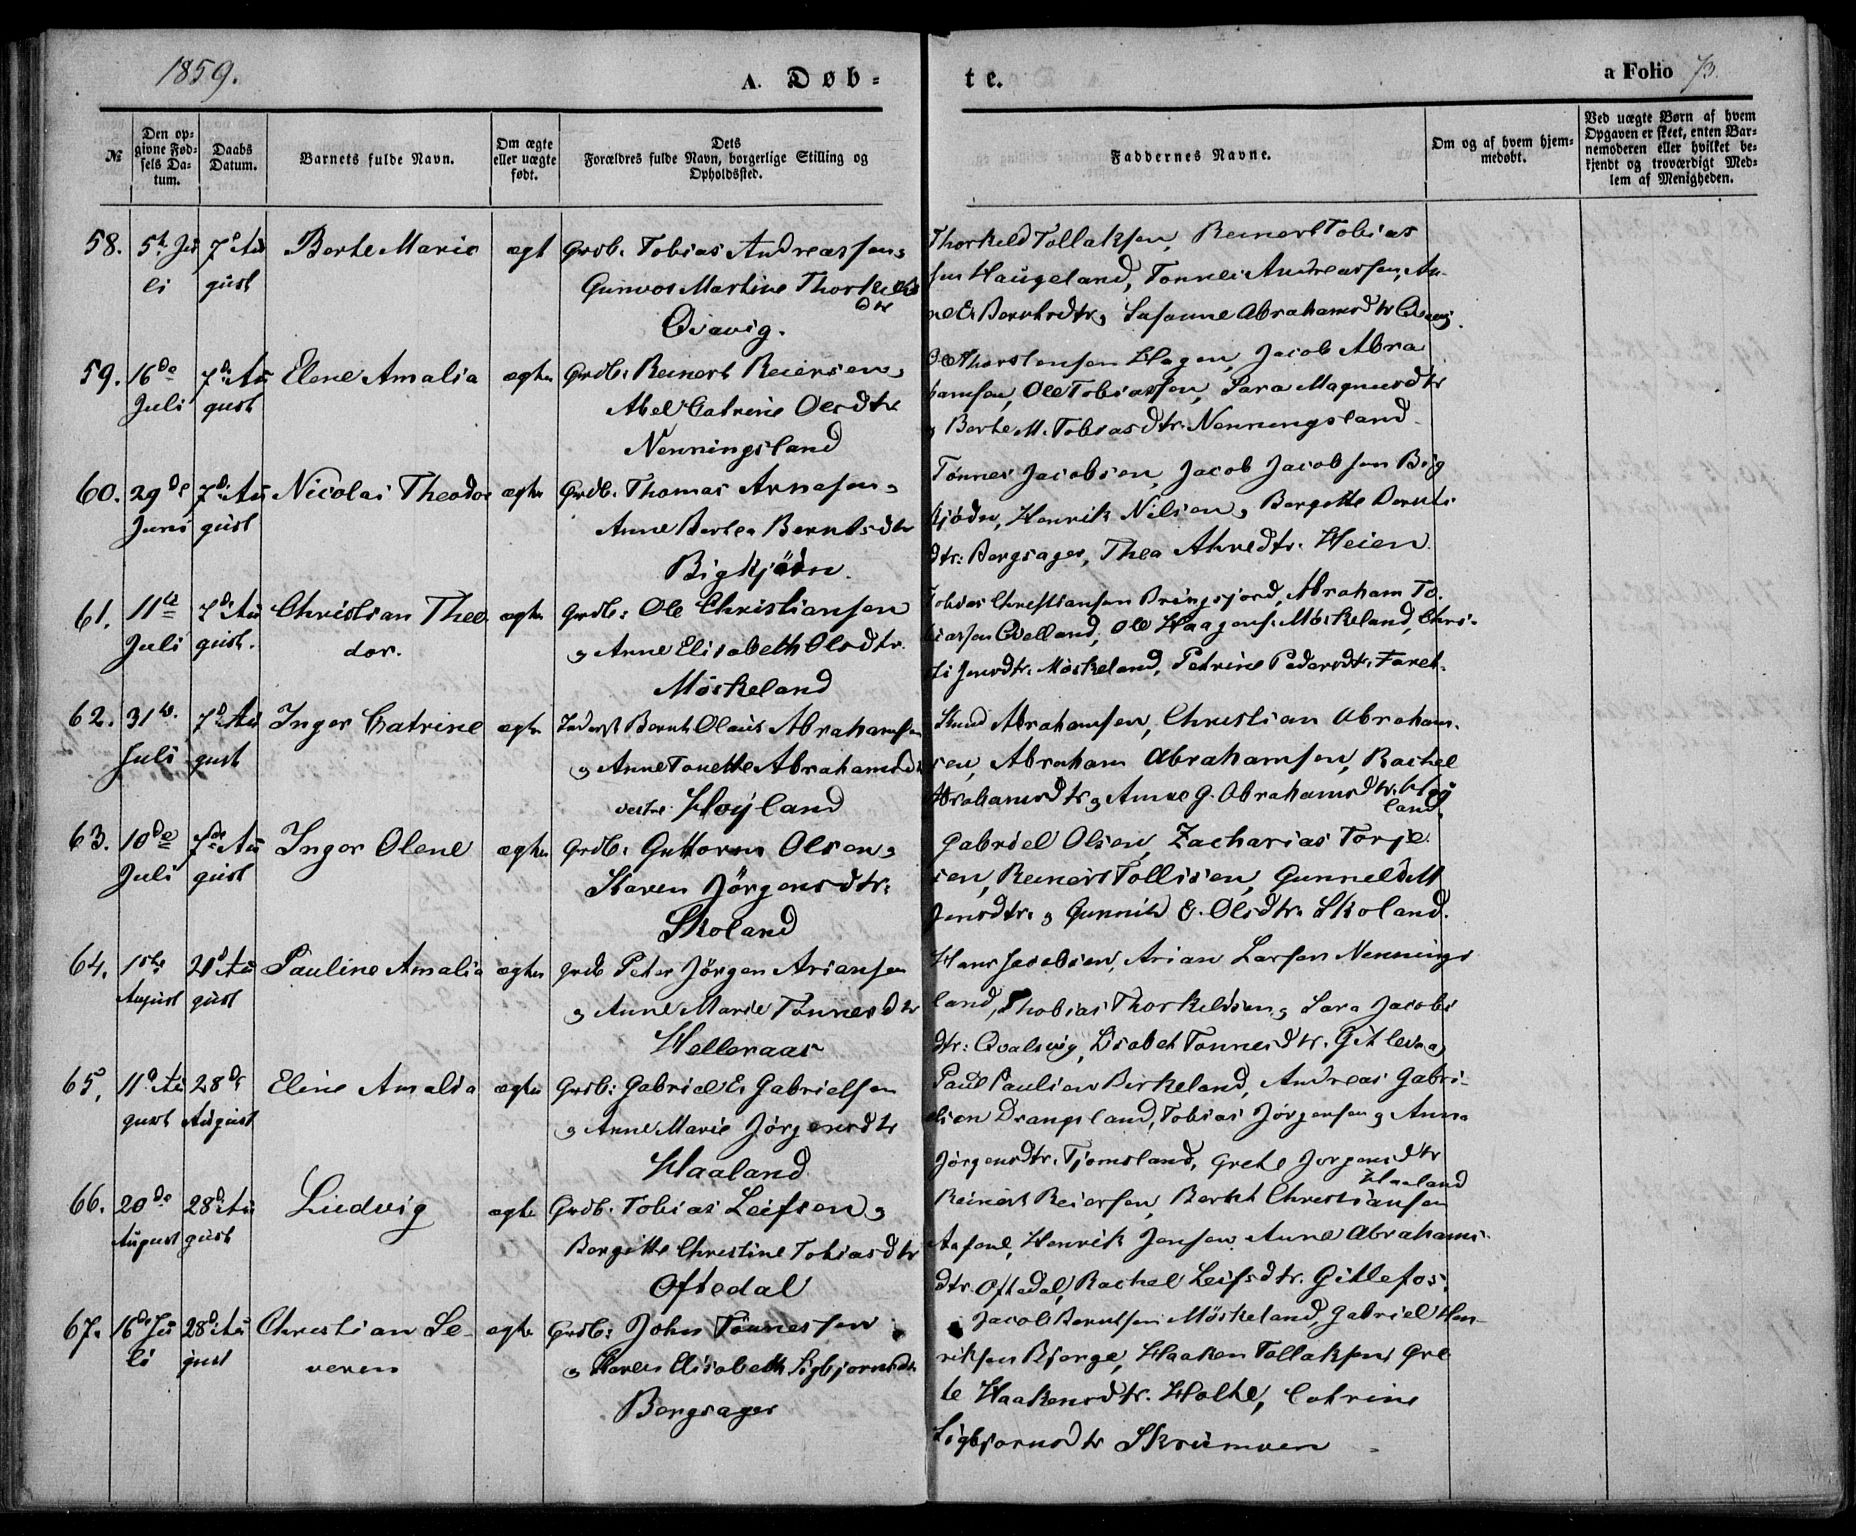 1859.
A. Døb-
te.
a Folio 73.
№
Den op-
givne Fød-
sels Da-
tum.
Daabs
Datum.
Barnets fulde Navn.
Om ægte
eller uægte
født.
Dets
Forældres fulde Navn, borgerlige Stilling og
Opholdssted.
Faddernes Navne.
Om og af hvem hjem-
medøbt.
Ved uægte Børn af hvem
Opgaven er skeet, enten Bar-
nemoderen eller hvilket be-
kjendt og troværdigt Med-
lem af Menigheden.
58. 5te Ju 7de Au Berte Marie ægt Grdb. Tobias Andreassen og
li gust Gunvor Martine Thorkelds
dtr
Qvavig.
Thorkeld Tollaksen, Reinert Tobias
sen Haugeland, Tønnes Andreassen, An-
ne E. Berntsdtr og Susanne Abrahamsdtr Qvavig.
59. 16de 7de Au Elene Amalia ægte Grdb: Reinert Reiersen og
Juli gust Abel Catrine Olsdtr
Nenningsland
Ole Thorstensen Hagen, Jacob Abra
hamsen, Ole Tobiassen, Sara Magnusdtr
og Berte M. Tobiasdtr. Nenningsland.
60. 29de 7de Au Nicolai Theodor ægte Grdb. Thomas Arnesen og
Juni gust Anne Bertea Berntsdtr
Bigkjødn.
Tønnes Jacobsen, Jacob Jacobsen Big
kjødn, Henrik Nilsen og Bergitte Bernts
dtr: Bergsager, Thea Ahredtr. Heien.
61. 11te 7de Au Christian Theo ægte Grdb: Ole Christiansen
Juli gust. dor. og Anne Elisabeth Olsdtr.
Møskeland
Tobias Christiansen Bringsjord, Abraham To
biassen Qvelland, Ole Haagens. Møskeland, Chri-
sti Jensdtr. Møskeland, Petrine Pedersdtr. Faret.
62. 31te 7de Au Inger Catrine ægte Inderst Bernt Olaus Abrahamsen
Juli gust og Anne Tonette Abrahamsdtr
vestre Høyland
Knud Abrahamsen, Christian Abraham-
sen, Abraham Abrahamsen, Rachel
Abrahamsdtr og Anne G. Abrahamsdtr. Høy
land.
63. 10de 7de Au Inger Olene ægte Grdb. Guttorm Olsen og
Juli gust Karen Jørgensdtr:
Skoland
Gabriel Olsen, Zacharias Torje
sen, Reinert Tollisen, Gunneld M
Jensdtr. og Gunnild E. Olsdtr. Skoland.
64. 1ste 21de Au Pauline Amalia ægte grdb Peter Jørgen Ariansen
August gust og Anne Marie Tønnesdtr
Helleraas
Hans Jacobsen, Arian Larsen Nennings
land, Thobias Thorkildsen og Sara Jacobs
dtr: Qvalsvig, Lisabet Tønnesdtr. Gitlevaag
65. 11te Au 28de Eline Amalia ægte Grdb: Gabriel E. Gabrielsen
gust August og Anne Marie Jørgensdtr
Haaland
Paul Paulsen Birkeland, Andreas Gabri-
elsen Drangsland, Tobias Jørgensen og Anna
Jørgensdtr. Tjomsland, Grete Jørgensdtr
Haaland
66. 20de 28de Au Ludvig ægte Grdb. Tobias Leifsen og
August gust Bergitte Christine Tobiasdtr
Oftedal
Reinert Reiersen, Bernt Christiansen
Aasene, Henrik Jensen, Anne Abrahams-
dtr Oftedal, Rachel Leifsdtr. Gitlefos.
67. 16de Ju 28de Au Christian Se- ægte Grdb: John Tønnessen
li gust veren og Karen Elisabeth Sigbjørnsdtr
Bergsager
Jacob Berntsen Møskeland, Gabriel Hen-
riksen Bjerge, Haaken Tollaksen, Gre
te Haakensdtr. Holte, Catrine
Sigbjørnsdtr Skrumoen